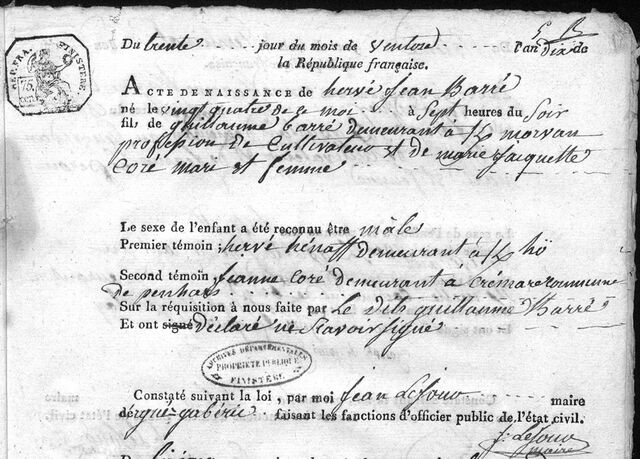 G B
Du trente jour du mois de Ventose l'an dix de
la République française.
REP. FRA. FINISTERE
75 cent
ACTE DE NAISSANCE de hervé Jean Barré
né le vingt quatre de ce moi à Sept heures du Soir
fils de guillaume barré demeurant à morvan
profession de Cultivateur et de marie Jaquette
Coré mari et femme
Le sexe de l'enfant a été reconnu être mâle
Premier témoin, hervé hénaff demeurant à
Second témoin, Jeanne Coré demeurant à Crémar commune
de penhars
Sur la réquisition à nous faite par Le dits guillaume Barré
Et ont signé déclaré ne Savoir Signé
ARCHIVES DÉPARTEMENTALES
PROPRIÉTÉ PUBLIQUE
FINISTÈRE
Constaté suivant la loi, par moi Jean LeJour maire
d'ergué-gabéric faisant les fonctions d'officier public de l'état civil.
J: LeJour
maire